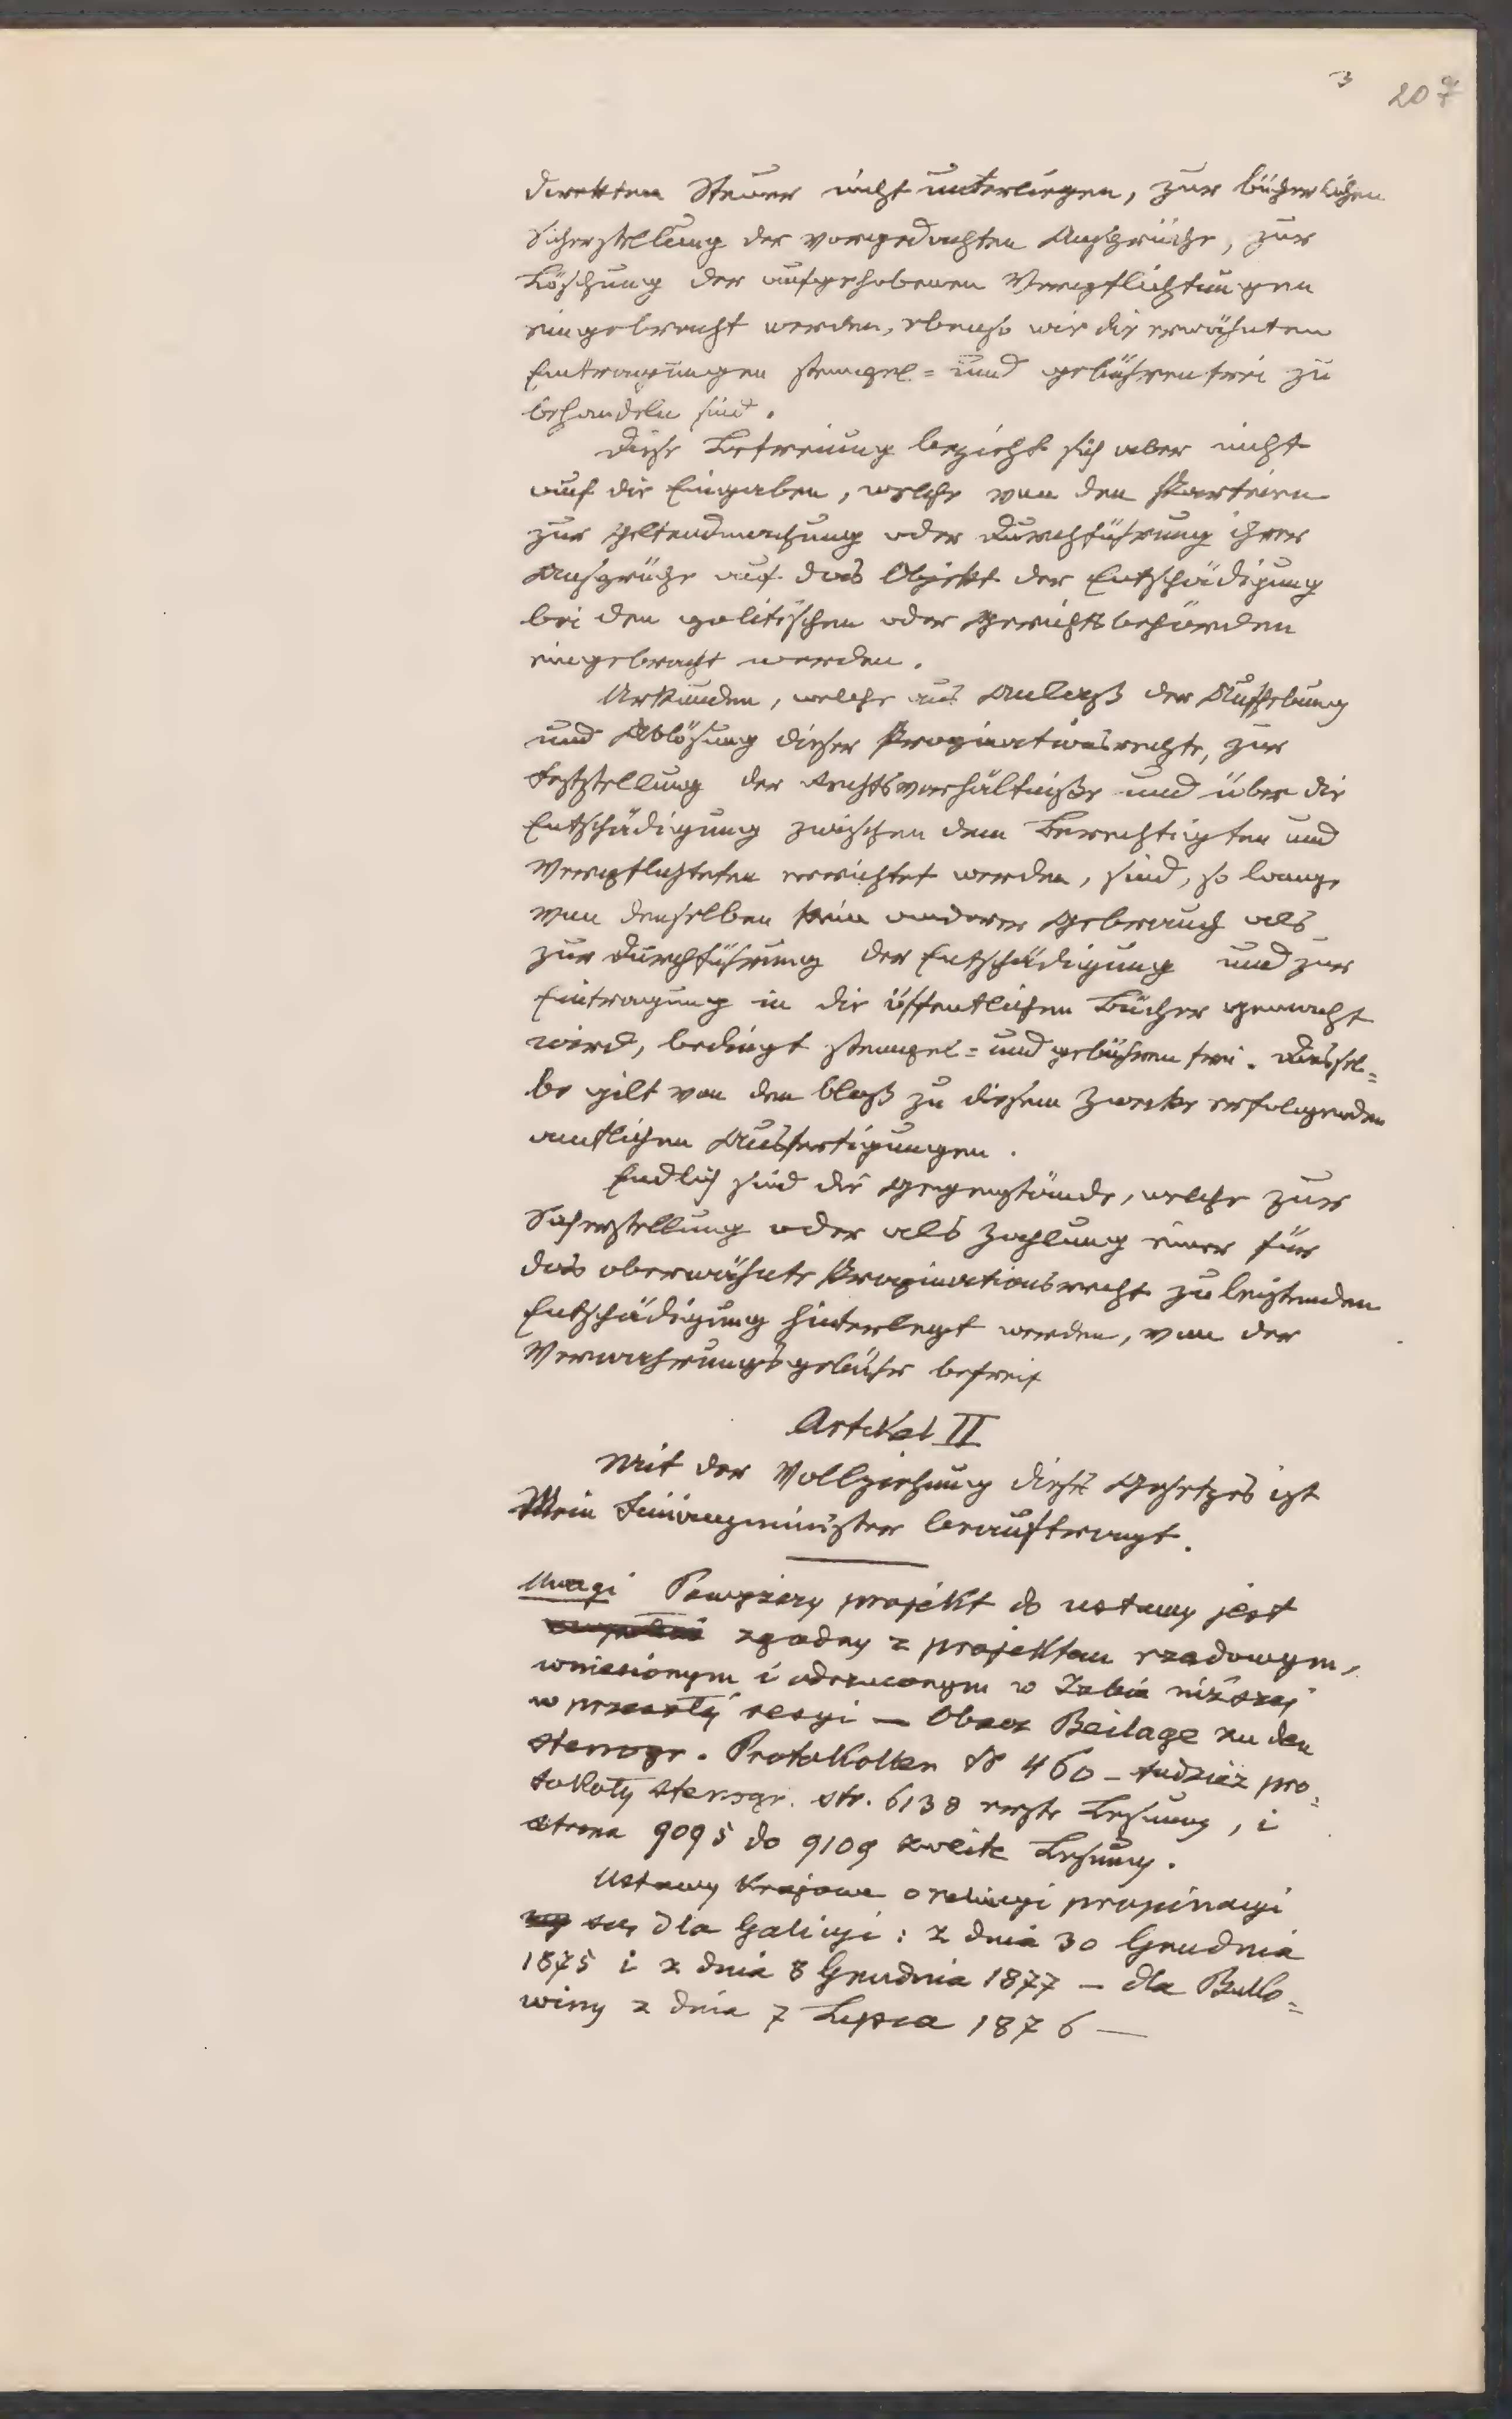 3 207
direkten Steuer nicht unterliegen, zur bücherlichen
Sicherstellung der vorgedachten Ansprüche, zur
Löschung der aufgehobenen Verpflichtungen
eingebracht werden, ebenso wie die erwähnten
Eintragungen stempel= und gebührenfrei zu
behandeln sind.
Diese Befreiung bezieht sich aber nicht
auf die Eingaben, welche von den Parteien
zur Geltendmachung oder Durchführung ihrer
Ansprüche auf das Objekt der Entschädigung
bei den politischen oder Gerichtsbehörden
eingebracht werden.
Urkunden, welche aus Anlaß der Aufhebung
und Ablösung dieser Propinationsrechte, zur
Feststellung der Rechtsverhältniße und über die
Entschädigung zwischen dem Berechtigten und
Verpflichteten errichtet werden, sind, so lange
von denselben kein anderer Gebrauch als
zur Durchführung der Entschädigung und zur
Eintragung in die öffentlichen Bücher gemacht
wird, bedingt stempel= und gebührenfrei. Dassel=
be gilt von den bloß zu diesem Zwecke erfolgenden
amtlichen Ausfertigungen.
Endlich sind die Gegenstände, welche zur
Sicherstellung oder als Zahlung einer für
das oberwähnte Propinationsrecht zu leistenden
Entschädigung hinterlegt werden, von der
Verwahrungsgebühr befreit
Artikel II
Mit der Vollziehung dieses Gesetzes ist
Mein Finanzminister beauftragt.
Uwagi Powyższy projekt do ustawy jest
zgodny z projektem rządowym,
wniesionym i odrzuconym w Izbie niższej
w przeszłéj sesyi — Obacz Beilage zu den
stenogr. Protokollen № 460 — tudzież pro=
tokoły stenogr. str. 6138 erste Lesung, i
strona 9095 do 9109 zweite Lesung.
Ustawy krajowe o propinacyi
są, dla Galicyi: z dnia 30 Grudnia
1875 i z dnia 8 Grudnia 1877 — dla Buko=
winy z dnia 7 Lipca 1876 —